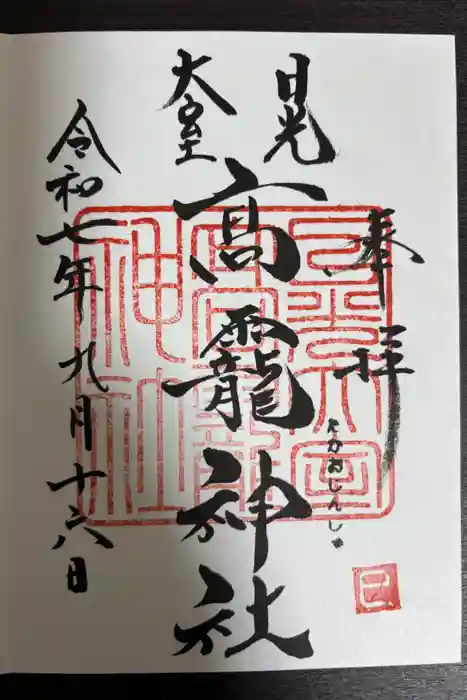 奉拝
日光
大室
髙靇神社
たかおじんじゃ
令和七年九月十六日
巳